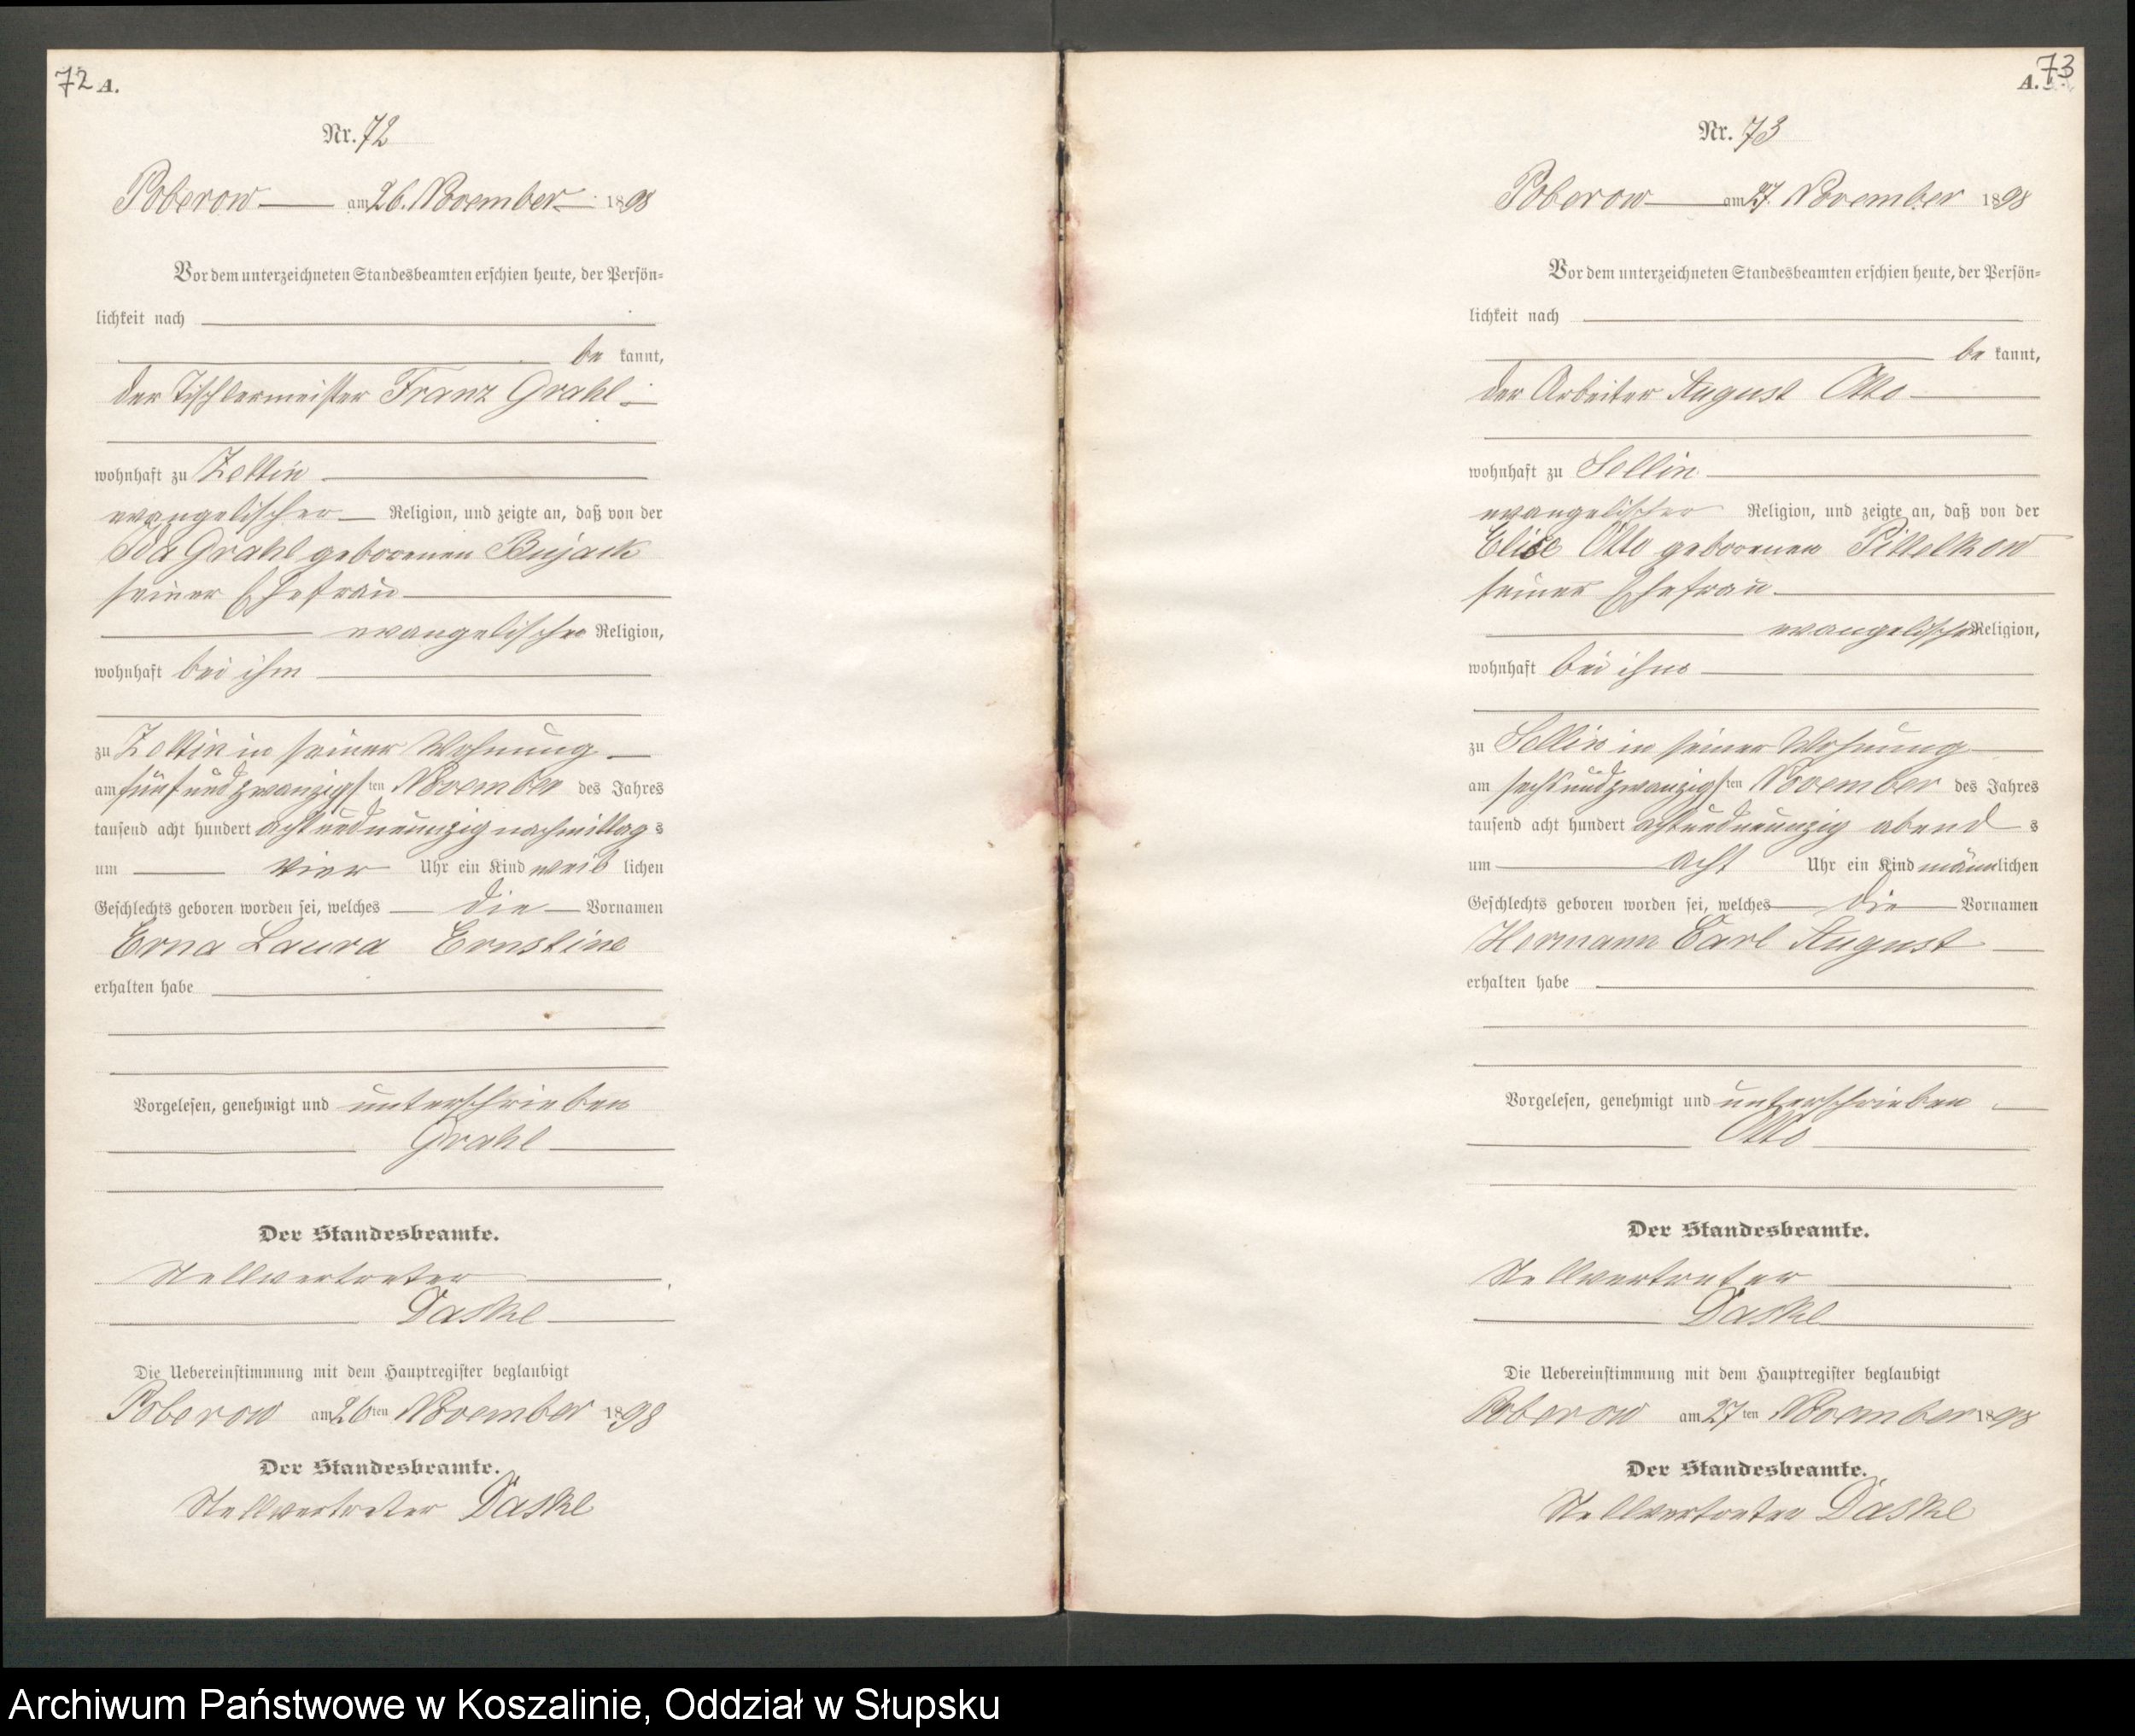 72 A.
Nr. 72
Poberow am 26. November 1898
Vor dem unterzeichneten Standesbeamten erschien heute, der Persön-
lichkeit nach
be kannt,
der Tischlermeister Franz Grahl
wohnhaft zu Zettin
evangelischer Religion, und zeigte an, daß von der
Ida Grahl geborenen Bujack
seiner Ehefrau
evangelischer Religion,
wohnhaft bei ihm
zu Zettin in seiner Wohnung
am fünfundzwanzigsten November des Jahres
tausend acht hundert achtundneunzig nachmittags
um vier Uhr ein Kind weiblichen
Geschlechts geboren worden sei, welches die Vornamen
Erna Laura Ernstine
erhalten habe
Vorgelesen, genehmigt und unterschrieben
Grahl
Der Standesbeamte.
Stellvertreter
Daske
Die Uebereinstimmung mit dem Hauptregister beglaubigt
Poberow am 26ten November 1898
Der Standesbeamte.
Stellvertreter Daske
A. 73
Nr. 73
Poberow am 27. November 1898
Vor dem unterzeichneten Standesbeamten erschien heute, der Persön-
lichkeit nach
be kannt,
der Arbeiter August Otto
wohnhaft zu Sellin
evangelischer Religion, und zeigte an, daß von der
Elise Otto geborenen Pittelkow
seiner Ehefrau
evangelischer Religion,
wohnhaft bei ihm
zu Sellin in seiner Wohnung
am sechsundzwanzigsten November des Jahres
tausend acht hundert achtundneunzig abends
um acht Uhr ein Kind männlichen
Geschlechts geboren worden sei, welches die Vornamen
Hermann Carl August
erhalten habe
Vorgelesen, genehmigt und unterschrieben
Otto
Der Standesbeamte.
Stellvertreter
Daske
Die Uebereinstimmung mit dem Hauptregister beglaubigt
Poberow am 27ten November 1898
Der Standesbeamte.
Stellvertreter Daske
Archiwum Państwowe w Koszalinie, Oddział w Słupsku